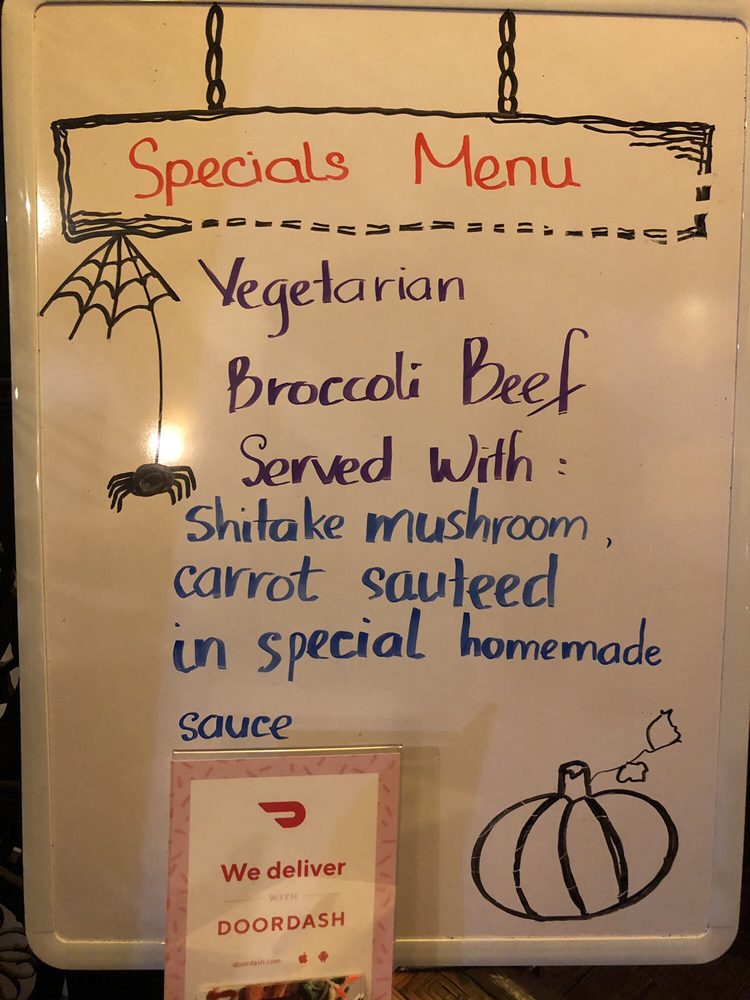 Specials Menu
Vegetarian
Broccoli Beef
Served With :
Shitake mushroom,
carrot sauteed
in special homemade
sauce
We deliver
WITH
DOORDASH
doordash.com